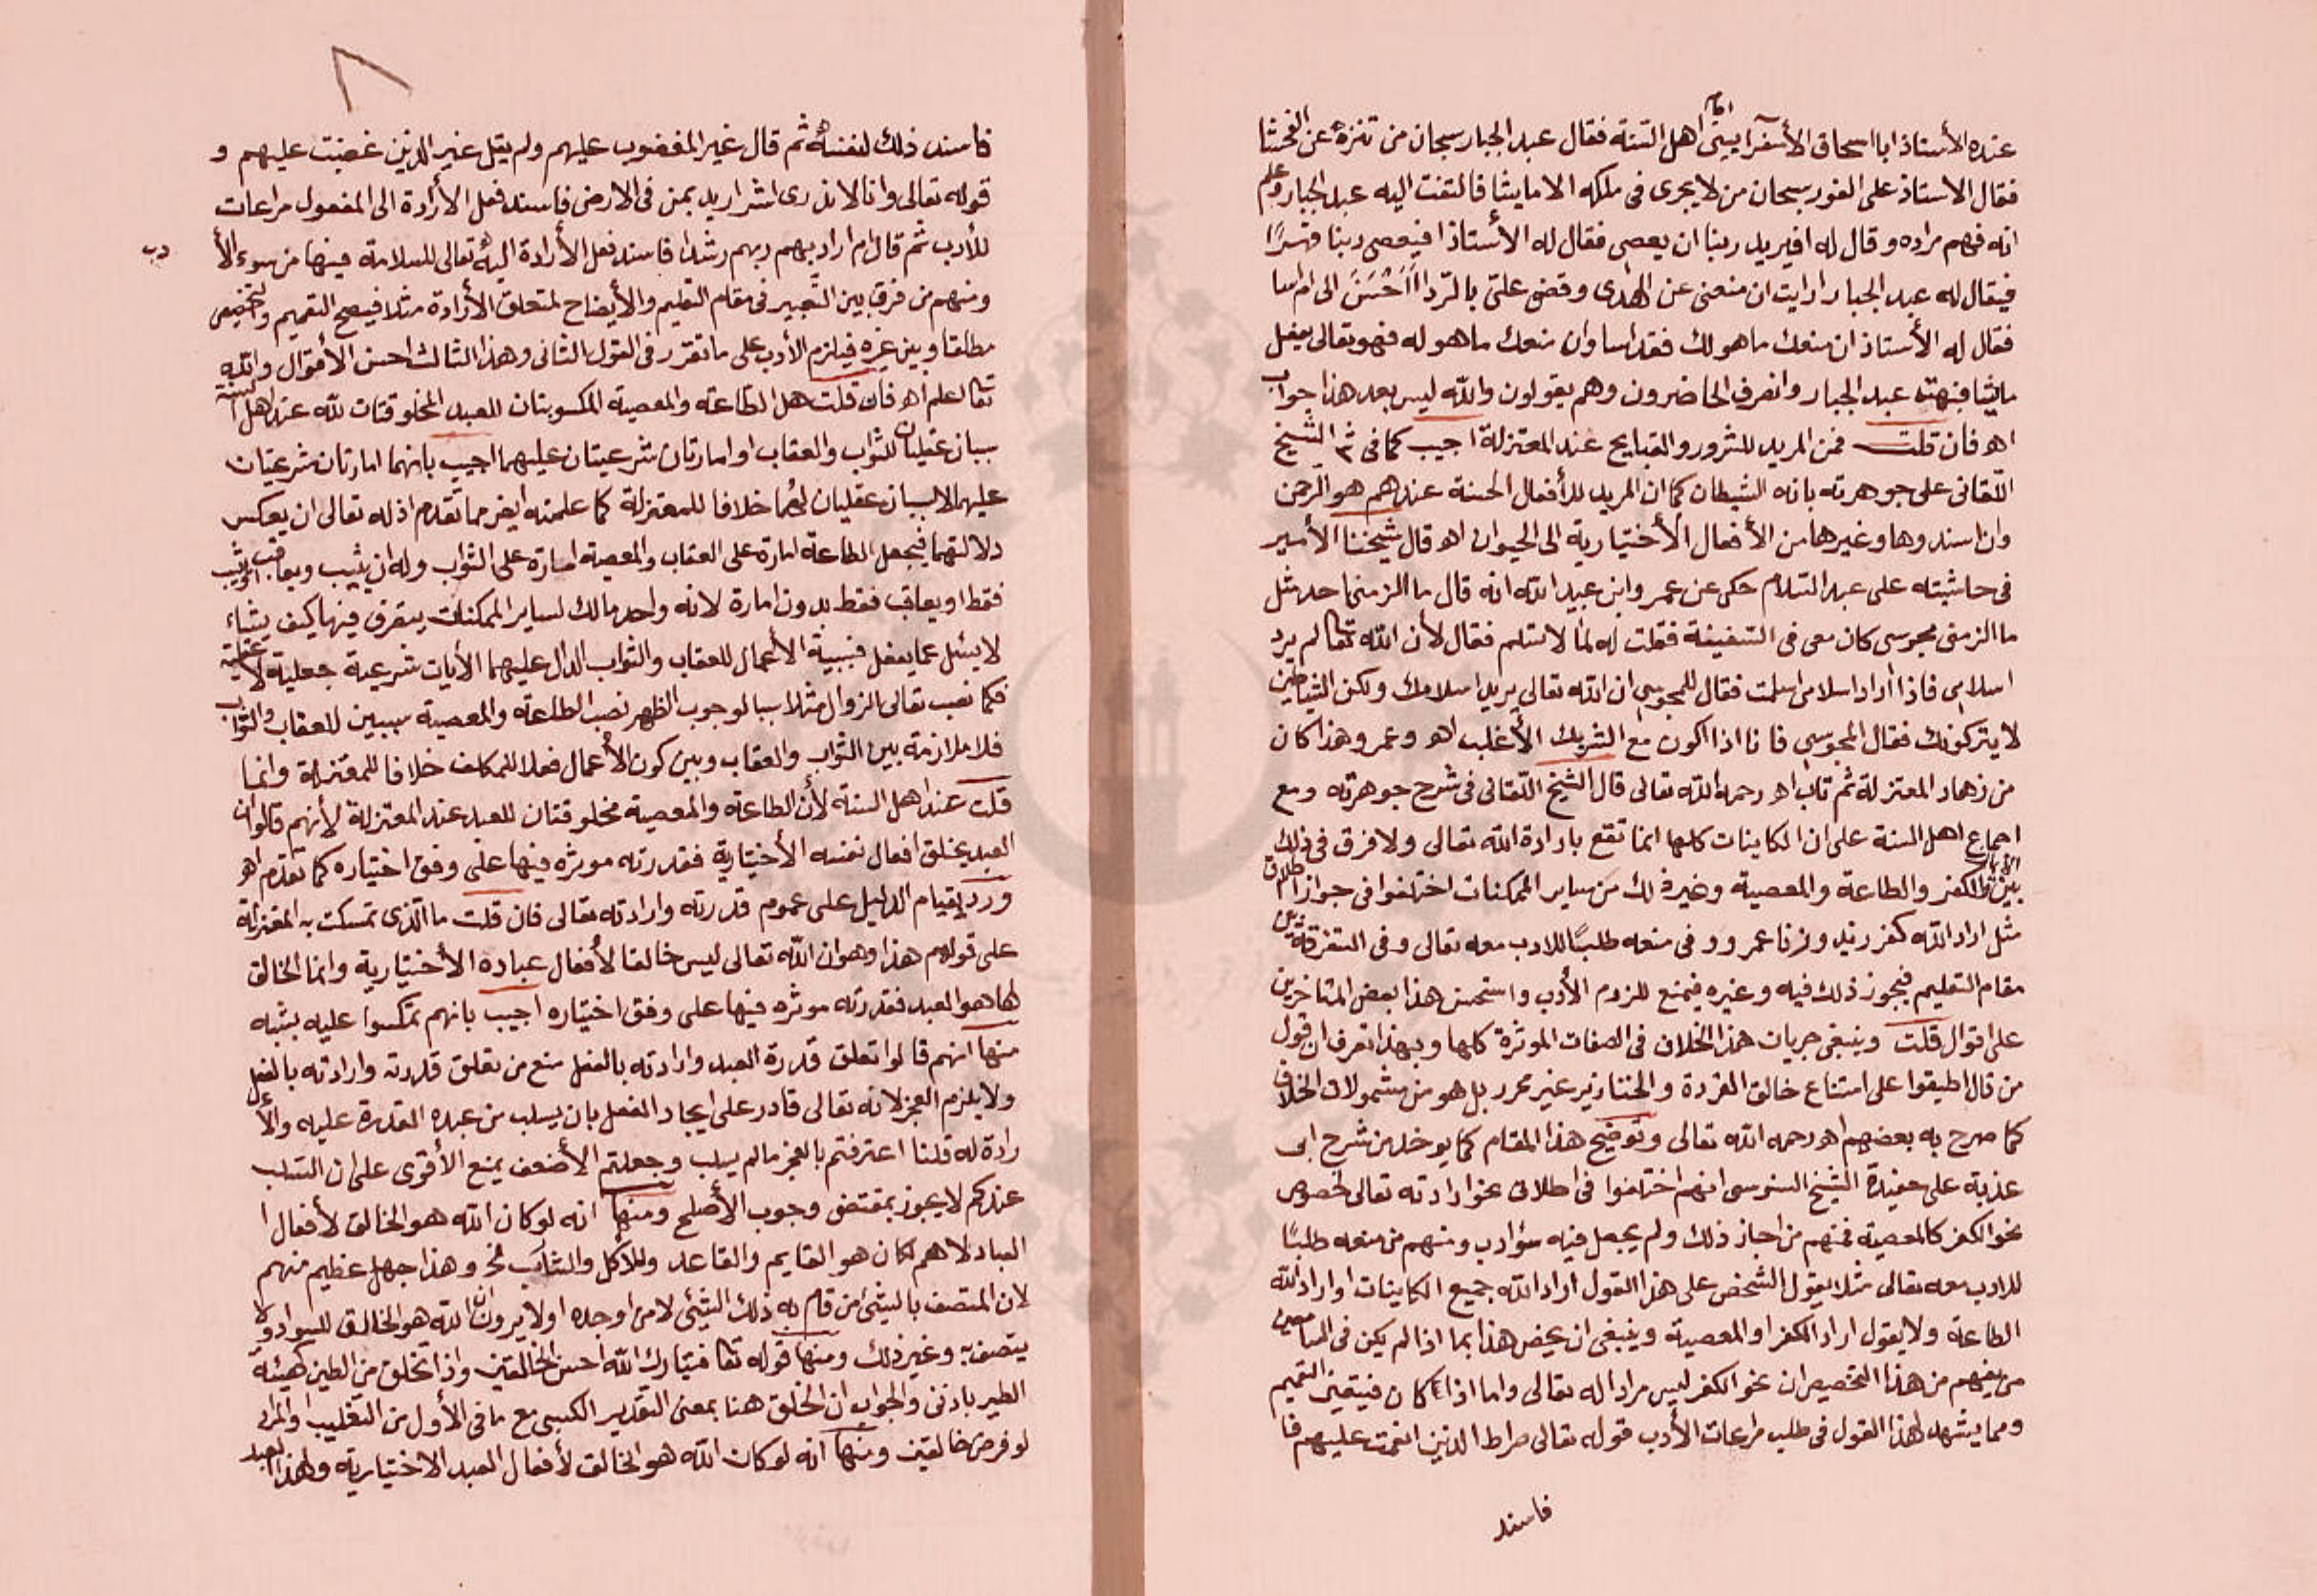 عنده الأستاذ ابا اسحاق الأسفرايينى امام اهل السنة فقال عبد الجبار سبحان من تنزه عن الفحشا
فقال الاستاذ على الفور سبحان من لا يجرى فى ملكه الا ما يشا فالتفت اليه عبد الجبار وعلم
انه فهم مراده وقال له افيريد ربنا ان يعصى فقال له الأستاذ افيعصى ربنا قهرًا
فيقال له عبد الجبار ارايت ان منعنى عن الهدى وقضى علىّ بالردا أَحْسَنَ الى ام اسا
فقال له الأستاذ ان منعك ما هو لك فقد اسا وان منعك ما هو له فهو تعالى يفعل
ما يشا فبهت عبد الجبار وانصرف الحاضرون وهم يقولون والله ليس بعد هذا جواب
اهـ فان قلت فمن المريد للشرور والقبايح عند المعتزلة اجيب كما فى ش الشيخ
اللقانى على جوهرته بانه الشيطان كما ان المريد للأفعال الحسنة عندهم هو الرحمن
وان اسندوها وغيرها من الأفعال الأختيارية الى الحيوان اهـ قال شيخنا الأمير
فى حاشيته على عبد السلام حكى عن عمرو ابن عبيد الله انه قال ما الزمنى احد مثل
ما الزمنى مجوسى كان معى فى السفينة فقلت له لم لا تسلم فقال لأن الله تعا لم يرد
اسلامى فاذا أراد اسلامى اسلمت فقال للمجوسى ان الله تعالى يريد اسلامك ولكن الشياطين
لا يتركونك فقال المجوسى فانا اذا اكون مع الشريك الأغلب اهـ وعمرو هذا كان
من زهاد المعتزلة ثم تاب اهـ رحمه الله تعالى قال الشيخ اللقانى فى شرح جوهرته ومع
اجماع اهل السنة على ان الكاينات كلها انما تقع بارادة الله تعالى ولا فرق فى ذلك
بين الايمان والكفر والطاعة والمعصية وغير ذلك من ساير الممكنات اختلفوا فى جواز اطلاق
مثل اراد الله كفر زيد وزنا عمرو وفى منعه طلبًا للادب معه تعالى وفى التفرقة بين
مقام التعليم فيجوز ذلك فيه وغيره فيمنع للزوم الأدب واستحسن هذا بعض المتاخرين
على اقوال قلت وينبغى جريان هذا الخلاف فى الصفات الموثرة كلها وبهذا تعرف ان قول
من قال اطبقوا على امتناع خالق القردة والخنازير غير محرر بل هو من مشمولات الخلاف
كما صرح به بعضهم اهـ رحمه الله تعالى وتوضيح هذا المقام كما يوخذ من شرح ابى
عذبة على عقيدة الشيخ السنوسى انهم اختلفوا فى اطلاق نحو ارادته تعالى لخصوص
نحو الكفر كالمعصية فمنهم من اجاز ذلك ولم يجعل فيه سؤ ادب ومنهم من منعه طلبًا
للادب معه تعالى مثلا يقول الشخص على هذا القول اراد الله جميع الكاينات او اراد الله
الطاعة ولا يقول اراد الكفر او المعصية وينبغى ان يخص هذا بما اذا لم يكن فى السامعين
من يفهم من هذا التخصيص ان نحو الكفر ليس مرادا له تعالى واما اذا كان فيتعين التعميم
ومما يشهد لهذا القول فى طلب مراعات الأدب قوله تعالى صراط الذين انعمت عليهم فا
فاسند
فاسند ذلك لنفسه ثم قال غير المغضوب عليهم ولم يقل غير الذين غضبت عليهم و
قوله تعالى وانا لا ندرى اشر اريد بمن فى الارض فاسند فعل الأرادة الى المفعول مراعات
للأدب ثم قال ام اراد بهم ربهم رشدا فاسند فعل الأرادة اليه تعالى للسلامة فيها من سوء الأ
دب
ومنهم من فرق بين التعبير فى مقام التعليم والأيضاح لمتعلق الأرادة مثلا فيصح التعميم والتخصيص
مطلقا وبين غيره فيلزم الأدب على ما تقرر فى القول الثانى وهذا الثالث احسن الأقوال والله
تعا لعلم اهـ فان قلت هل الطاعة والمعصية المكسوبتان للعبد المخلوقتان لله عند اهل السنة
سببان عقليان للثواب والعقاب او امارتان شرعيتان عليهما اجيب بانهما امارتان شرعيتان
عليهما لا سببان عقليان لهما خلافا للمعتزلة كما علمته ايض مما تقدم اذ له تعالى ان يعكس
دلالتهما فيجعل الطاعة امارة على العقاب والمعصية امارة على الثواب وله ان يثيب ويعاقب او يثيب
فقط او يعاقب فقط بدون امارة لانه واحد مالك لساير الممكنات يتصرف فيها كيف يشاء
لا يسئل عما يفعل فسببية الأعمال للعقاب والثواب الدال عليهما الأيات شرعية جعلية لا عقلية
فكما نصب تعالى الزوال مثلا سببا لوجوب الظهر نصب الطاعة والمعصية سببين للعقاب والثواب
فلا ملازمة بين الثواب والعقاب وبين كون الأعمال فعلا للمكلف خلافا للمعتزلة وانما
قلت عند اهل السنة لأن الطاعة والمعصية مخلوقتان للعبد عند المعتزلة لأنهم قالوا ان
العبد يخلق افعال نفسه الأختيارية فقدرته موثره فيها على وفق اختياره كما تقدم اهـ
ورد بقيام الدليل على عموم قدرته وارادته تعالى فان قلت ما الذى تمسكت به المعتزلة
على قولهم هذا وهو ان الله تعالى ليس خالقا لأفعال عباده الأختيارية وانما الخالق
لها هو العبد فقدرته موثره فيها على وفق اختياره اجيب بانهم تمكسوا عليه بشبه
منها انهم قالوا تعلق قدرة العبد وارادته بالفعل منع من تعلق قدرته وارادته بالفعل
ولا يلزم العجز لانه تعالى قادر على ايجاد الفعل بان يسلب من عبده القدرة عليه والأ
رادة له قلنا اعترفتم بالعجز ما لم يسلب وجعلتم الأضعف يمنع الأقوى على ان السلب
عندكم لا يجوز بمقتضى وجوب الأصلح ومنها انه لو كان الله هو الخالق لأفعال ا
العباد لا هم لكان هو القايم والقاعد والأكل والشارب الخ وهذا جهل عظيم منهم
لان المتصف بالشيئ من قام به ذلك الشيئ لا من اوجده اولا يرون ان الله هو الخالق للسواد ولا
يتصف به وغير ذلك ومنها قوله تعا فتبارك الله احسن الخالقين واذ تخلق من الطين كهيئة
الطير باذنى والجواب ان الخلق هنا بمعنى التقدير الكسبى مع ما فى الأول من التغليب والمراد
لو فرض خالقين ومنها انه لو كان الله هو الخالق لأفعال العبد الاختيارية ولهذا العبد